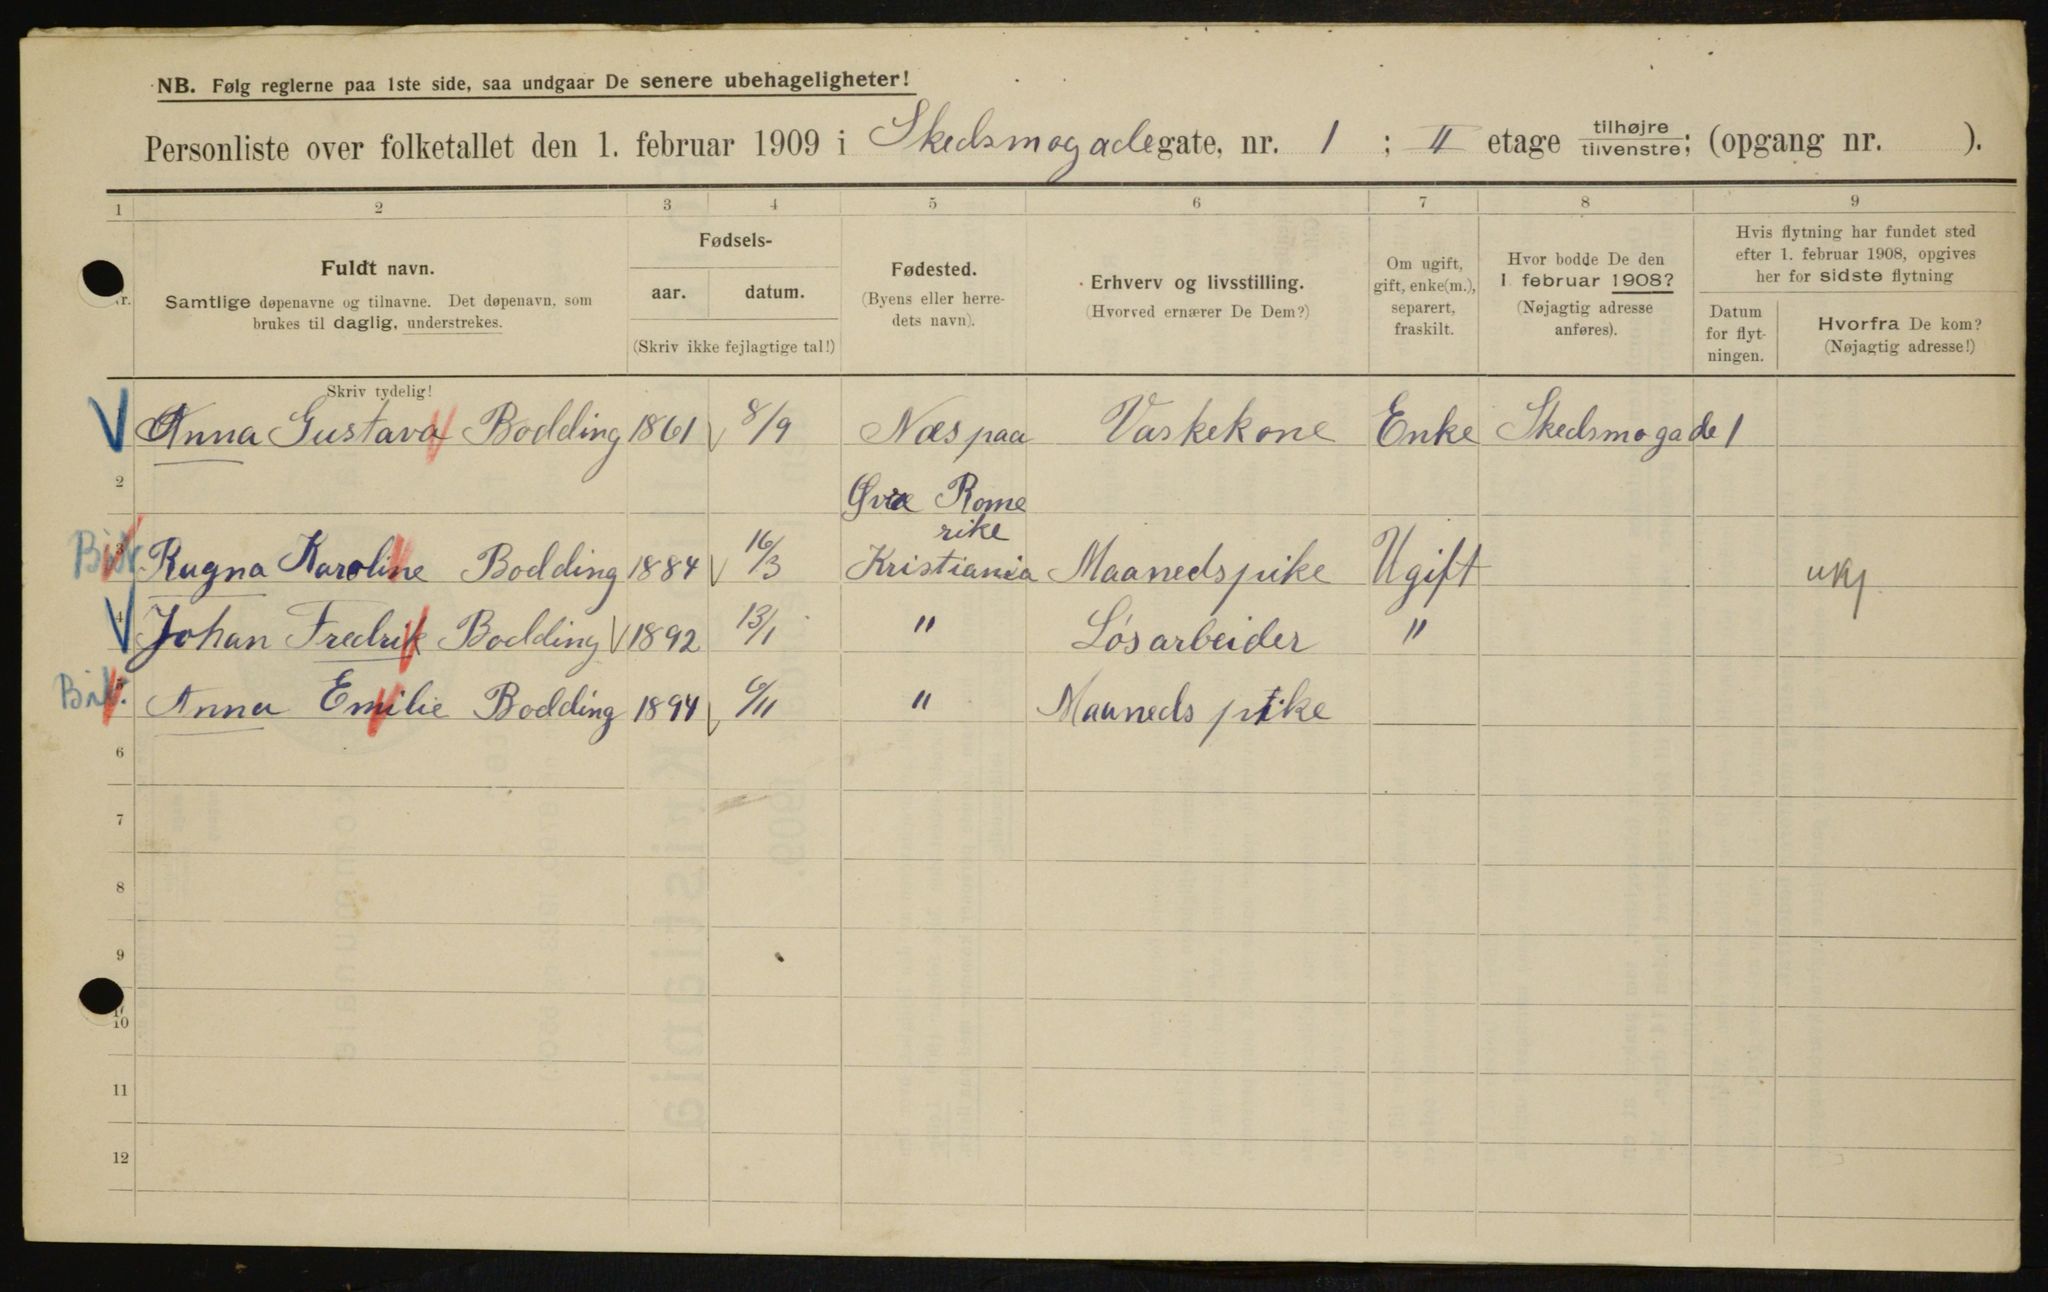 NB. Følg reglerne paa 1ste side, saa undgaar De senere ubehageligheter!
Personliste over folketallet den 1. februar 1909 i Skedsmogadegate, nr. 1 ; II etage tilhøjre tilvenstre; (opgang nr. ).
1 2 3 4 5 6 7 8 9
Fuldt navn.
Samtlige døpenavne og tilnavne. Det døpenavn, som
brukes til daglig, understrekes.
Fødsels-
aar. datum.
(Skriv ikke fejlagtige tal!)
Fødested.
(Byens eller herre-
dets navn).
Erhverv og livsstilling.
(Hvorved ernærer De Dem?)
Om ugift,
gift, enke(m.),
separert,
fraskilt.
Hvor bodde De den
1 februar 1908?
(Nøjagtig adresse
anføres).
Hvis flytning har fundet sted
efter 1. februar 1908, opgives
her for sidste flytning
Datum
for flyt-
ningen.
Hvorfra De kom?
(Nøjagtig adresse!)
Skriv tydelig!
Anna Gustava Bodding 1861 8/9 Næs paa Vaskekone Enke Skedsmogade 1
2 Øvre Rome
rike
3 Ragna Karoline Bodding 1884 16/3 Kristiania Maanedspike Ugift
4 Johan Fredrik Bodding 1892 13/1 " Løsarbeider "
5 Anna Emilie Bodding 1894 6/11 " Maaneds pike
6
7
8
9
10
11
12